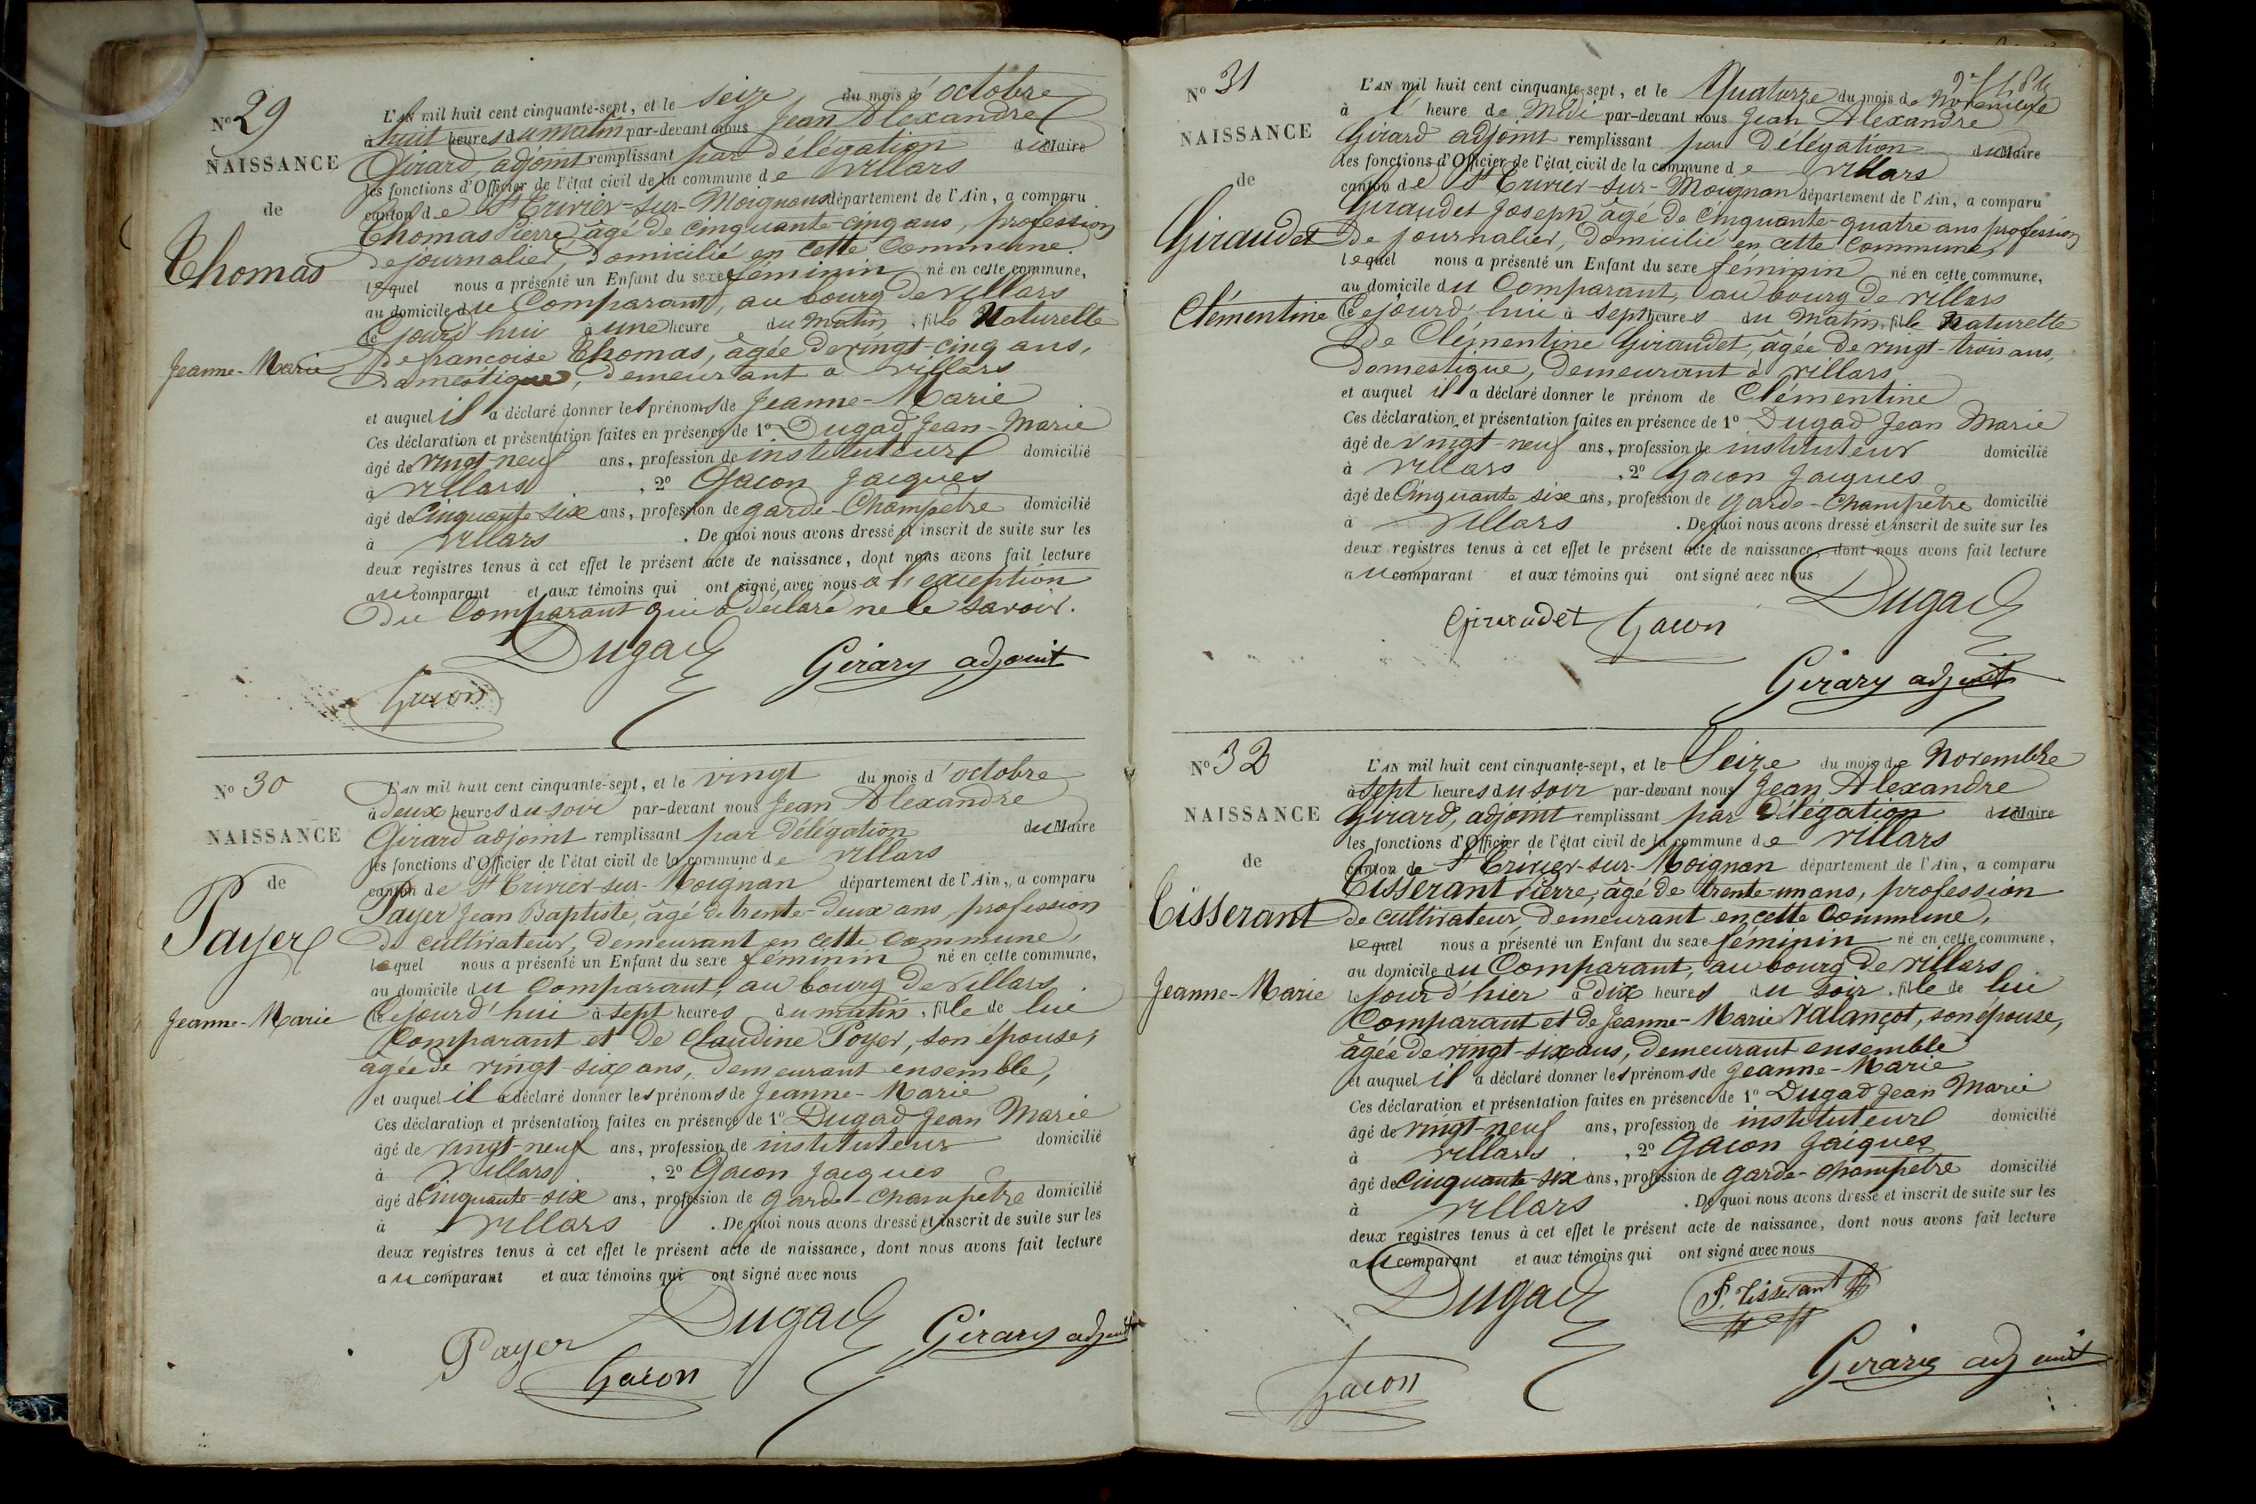 N° 29
NAISSANCE
de
Thomas
Jeanne-Marie
L'AN mil huit cent cinquante-sept, et le seize du mois d'octobre
à huit heures du matin par-devant nous Jean Alexandre
Girard, adjoint remplissant par délégation du Maire
les fonctions d'Officier de l'état civil de la commune de Villars
canton de St Trivier-sur-Moignans département de l'Ain, a comparu
Thomas Pierre, âgé de cinquante-cinq ans, profession
de journalier, domicilié en cette Commune
lequel nous a présenté un Enfant du sexe féminin né en cette commune,
au domicile du Comparant, au bourg de Villars
Cejourd'hui à une heure du matin, fille Naturelle
de françoise Thomas, âgée de vingt-cinq ans,
domestique, demeurant à Villars
et auquel il a déclaré donner les prénoms de Jeanne-Marie
Ces déclaration et présentation faites en présence de 1° Dugad Jean-Marie
âgé de vingt-neuf ans, profession de instituteur domicilié
à Villars, 2° Gacon Jacques
âgé de Cinquante-six ans, profession de garde-Champêtre domicilié
à Villars. De quoi nous avons dressé et inscrit de suite sur les
deux registres tenus à cet effet le présent acte de naissance, dont nous avons fait lecture
au comparant et aux témoins qui ont signé avec nous à l'exception
du Comparant qui a déclaré ne le savoir.
Dugad
Girard adjoint
Gacon
N° 30
NAISSANCE
de
Payer
Jeanne-Marie
L'AN mil huit cent cinquante-sept, et le vingt du mois d'octobre
à deux heures du soir par-devant nous Jean Alexandre
Girard adjoint remplissant par délégation du Maire
les fonctions d'Officier de l'état civil de la commune de Villars
canton de St Trivier-sur-Moignan département de l'Ain, a comparu
Payer Jean Baptiste, âgé de trente-deux ans, profession
de cultivateur, demeurant en cette commune,
lequel nous a présenté un Enfant du sexe féminin né en cette commune,
au domicile du Comparant, au bourg de Villars
Cejourd'hui à sept heures du matin, fille de lui
Comparant et de Claudine Poyer, son épouse,
âgée de vingt-six ans, demeurant ensemble,
et auquel il a déclaré donner les prénoms de Jeanne-Marie
Ces déclaration et présentation faites en présence de 1° Dugad Jean Marie
âgé de vingt-neuf ans, profession de instituteur domicilié
à Villars, 2° Gacon Jacques
âgé de Cinquante-six ans, profession de garde-champêtre domicilié
à Villars. De quoi nous avons dressé et inscrit de suite sur les
deux registres tenus à cet effet le présent acte de naissance, dont nous avons fait lecture
au comparant et aux témoins qui ont signé avec nous
Dugad
Payer
Girard adjoint
Gacon
N° 31
NAISSANCE
de
Giraudet
Clémentine
L'AN mil huit cent cinquante-sept, et le Quatorze du mois de Novembre
à l'heure de Midi par-devant nous Jean Alexandre
Girard adjoint remplissant par Délégation du Maire
les fonctions d'Officier de l'état civil de la commune de Villars
canton de St Trivier-sur-Moignan département de l'Ain, a comparu
Giraudet Joseph âgé de Cinquante-quatre ans profession
de journalier, domicilié en cette Commune,
lequel nous a présenté un Enfant du sexe féminin né en cette commune,
au domicile du Comparant, au bourg de Villars
Cejourd'hui à sept heures du Matin, fille Naturelle
de Clémentine Giraudet, âgée de vingt-trois ans,
domestique, demeurant à Villars
et auquel il a déclaré donner le prénom de Clémentine
Ces déclaration et présentation faites en présence de 1° Dugad Jean Marie
âgé de vingt-neuf ans, profession de instituteur domicilié
à Villars, 2° Gacon Jacques
âgé de Cinquante six ans, profession de garde-Champêtre domicilié
à Villars. De quoi nous avons dressé et inscrit de suite sur les
deux registres tenus à cet effet le présent acte de naissance, dont nous avons fait lecture
au comparant et aux témoins qui ont signé avec nous
Dugad
Giraudet Gacon
Girard adjoint
N° 32
NAISSANCE
de
Tisserant
Jeanne-Marie
L'AN mil huit cent cinquante-sept, et le Seize du mois de Novembre
à sept heures du soir par-devant nous Jean Alexandre
Girard, adjoint remplissant par délégation du Maire
les fonctions d'Officier de l'état civil de la commune de Villars
canton de St Trivier-sur-Moignan département de l'Ain, a comparu
Tisserant Pierre, âgé de trente-un ans, profession
de cultivateur, demeurant en cette Commune,
lequel nous a présenté un Enfant du sexe féminin né en cette commune,
au domicile du Comparant, au bourg de Villars
le jour d'hier à dix heures du soir, fille de lui
Comparant et de Jeanne-Marie Valançot, son épouse,
âgée de vingt-six ans, demeurant ensemble
et auquel il a déclaré donner les prénoms de Jeanne-Marie
Ces déclaration et présentation faites en présence de 1° Dugad Jean Marie
âgé de vingt-neuf ans, profession de instituteur domicilié
à Villars, 2° Gacon Jacques
âgé de Cinquante-six ans, profession de garde-champêtre domicilié
à Villars. De quoi nous avons dressé et inscrit de suite sur les
deux registres tenus à cet effet le présent acte de naissance, dont nous avons fait lecture
au comparant et aux témoins qui ont signé avec nous
Dugad
P. Tisserant
Girard adjoint
Gacon